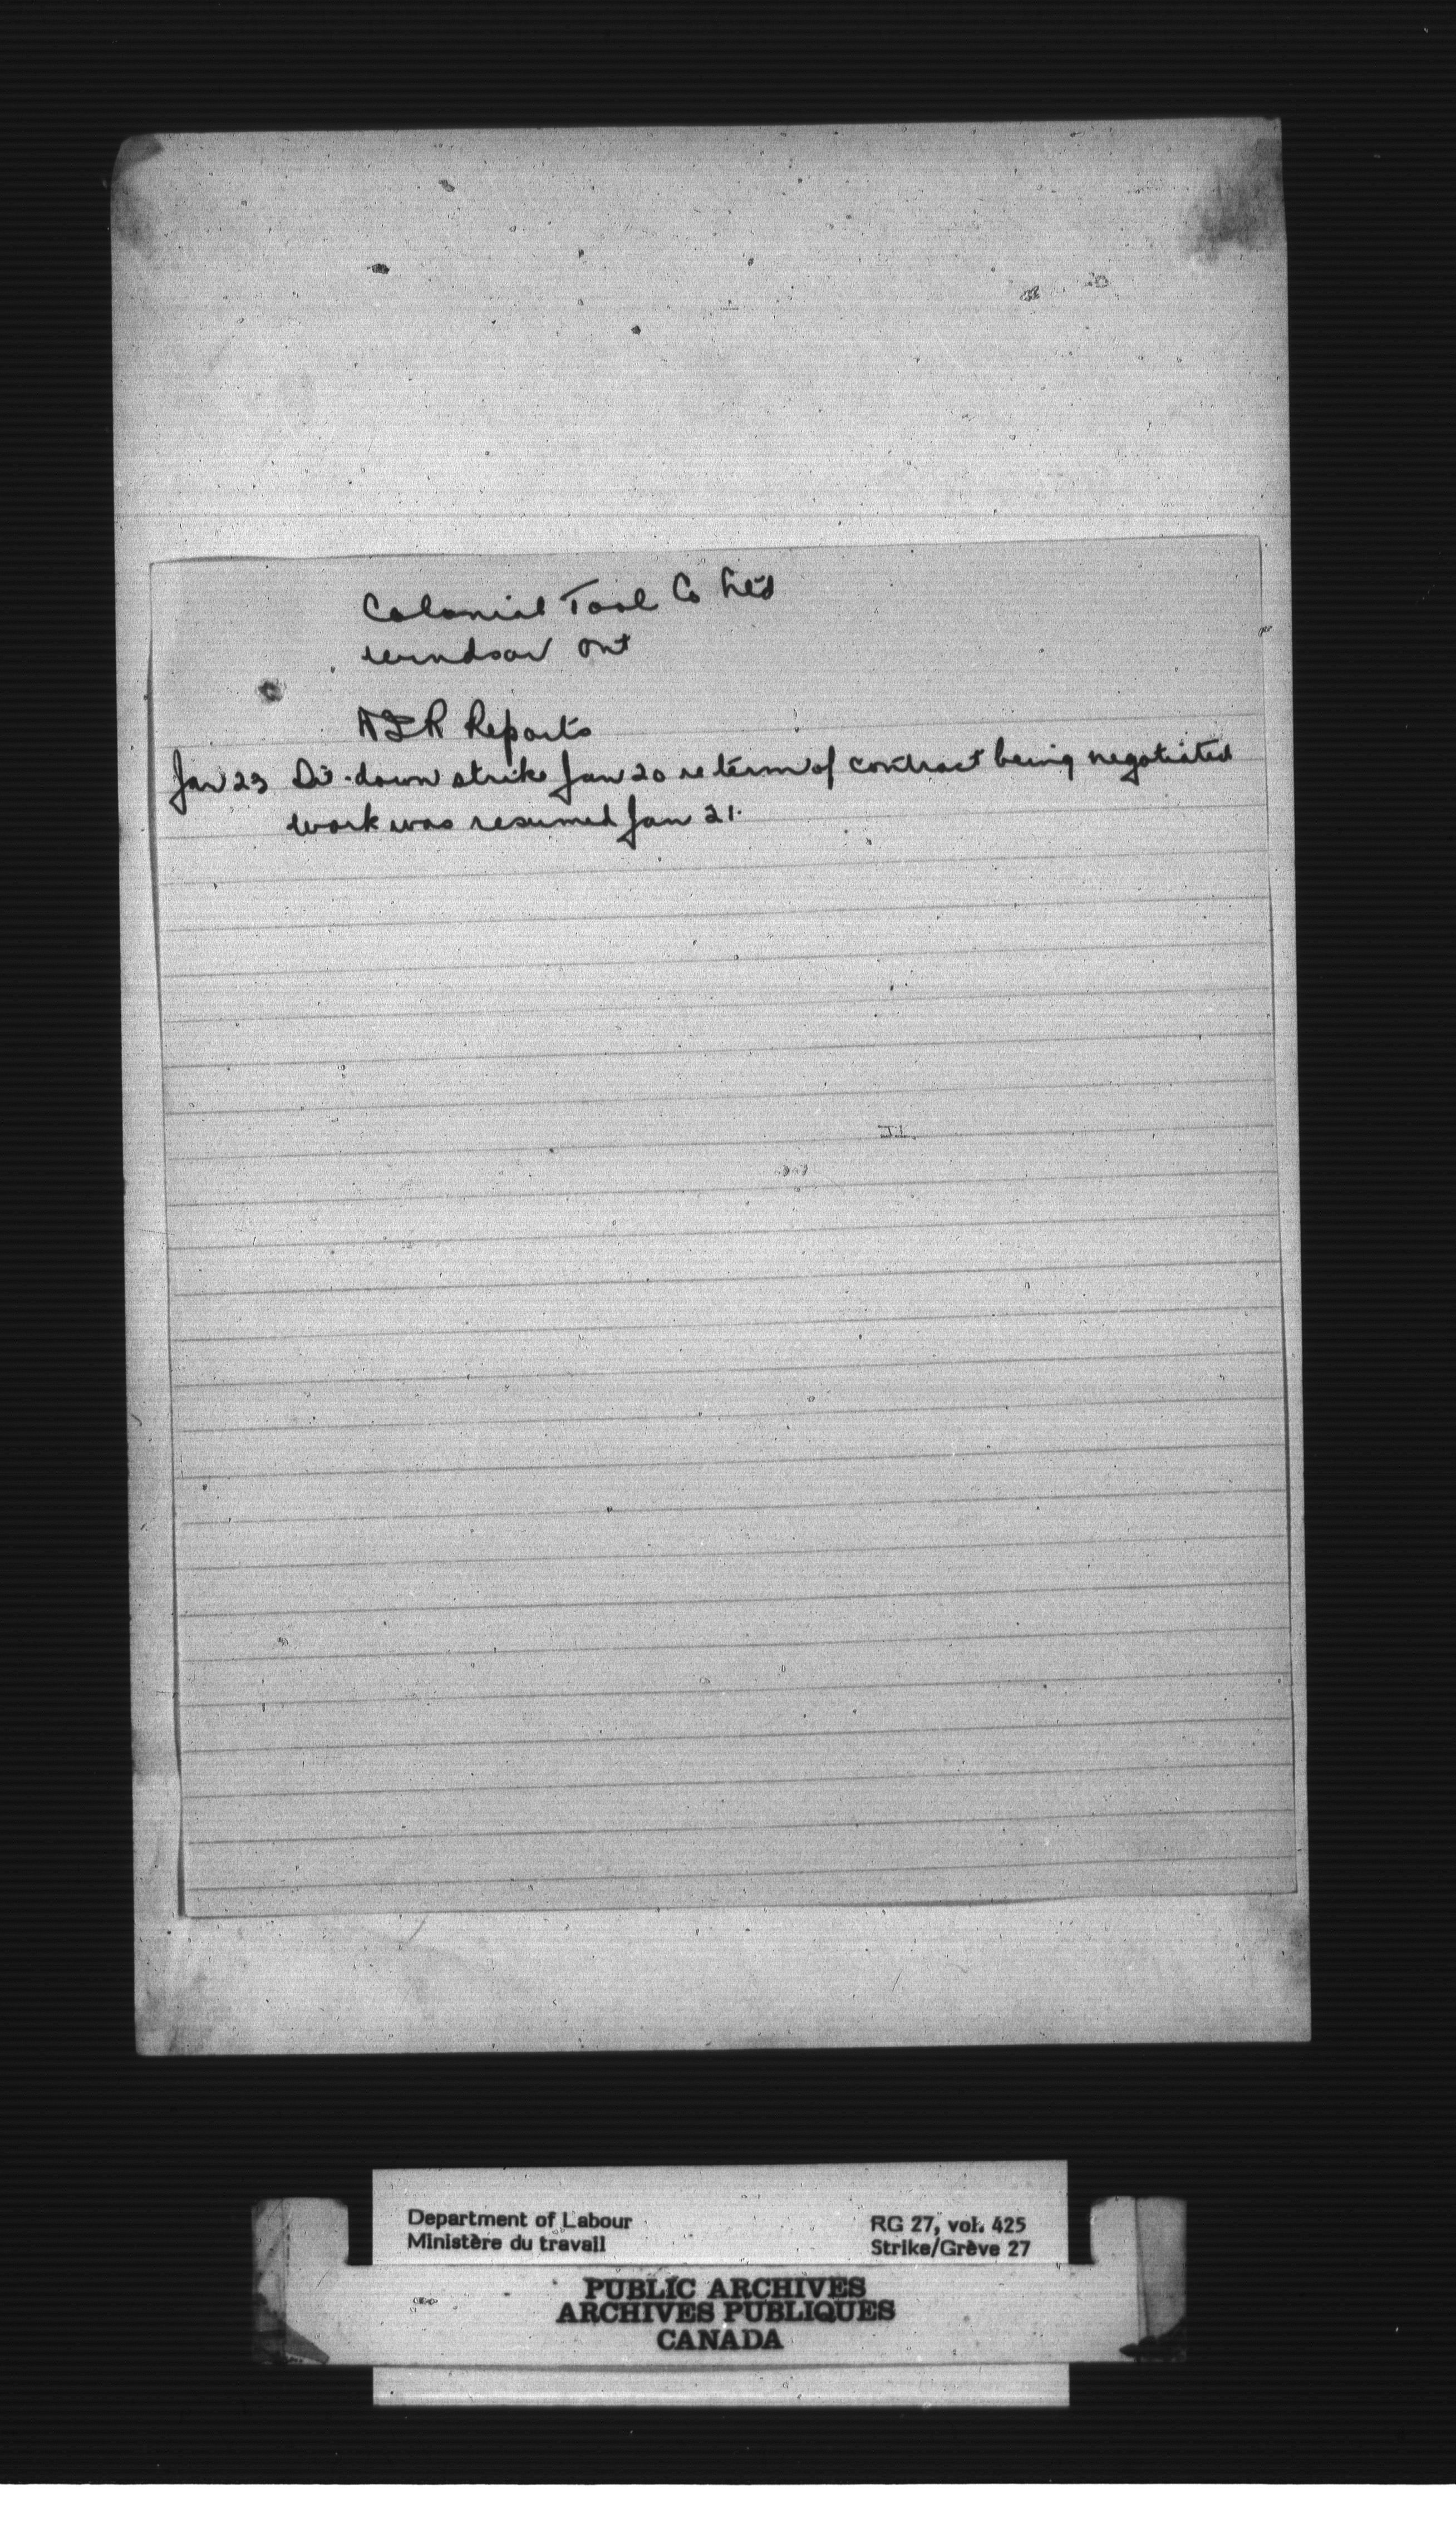 Colonial Tool Co Ltd
Windsor Ont
Reports
Jan 23 Sit-down strike Jan 20 re term of contract being negotiated
work was resumed Jan 21.
Department of Labour
Ministère du travail
RG 27, vol. 425
Strike/Grève 27
PUBLIC ARCHIVES
ARCHIVES PUBLIQUES
CANADA